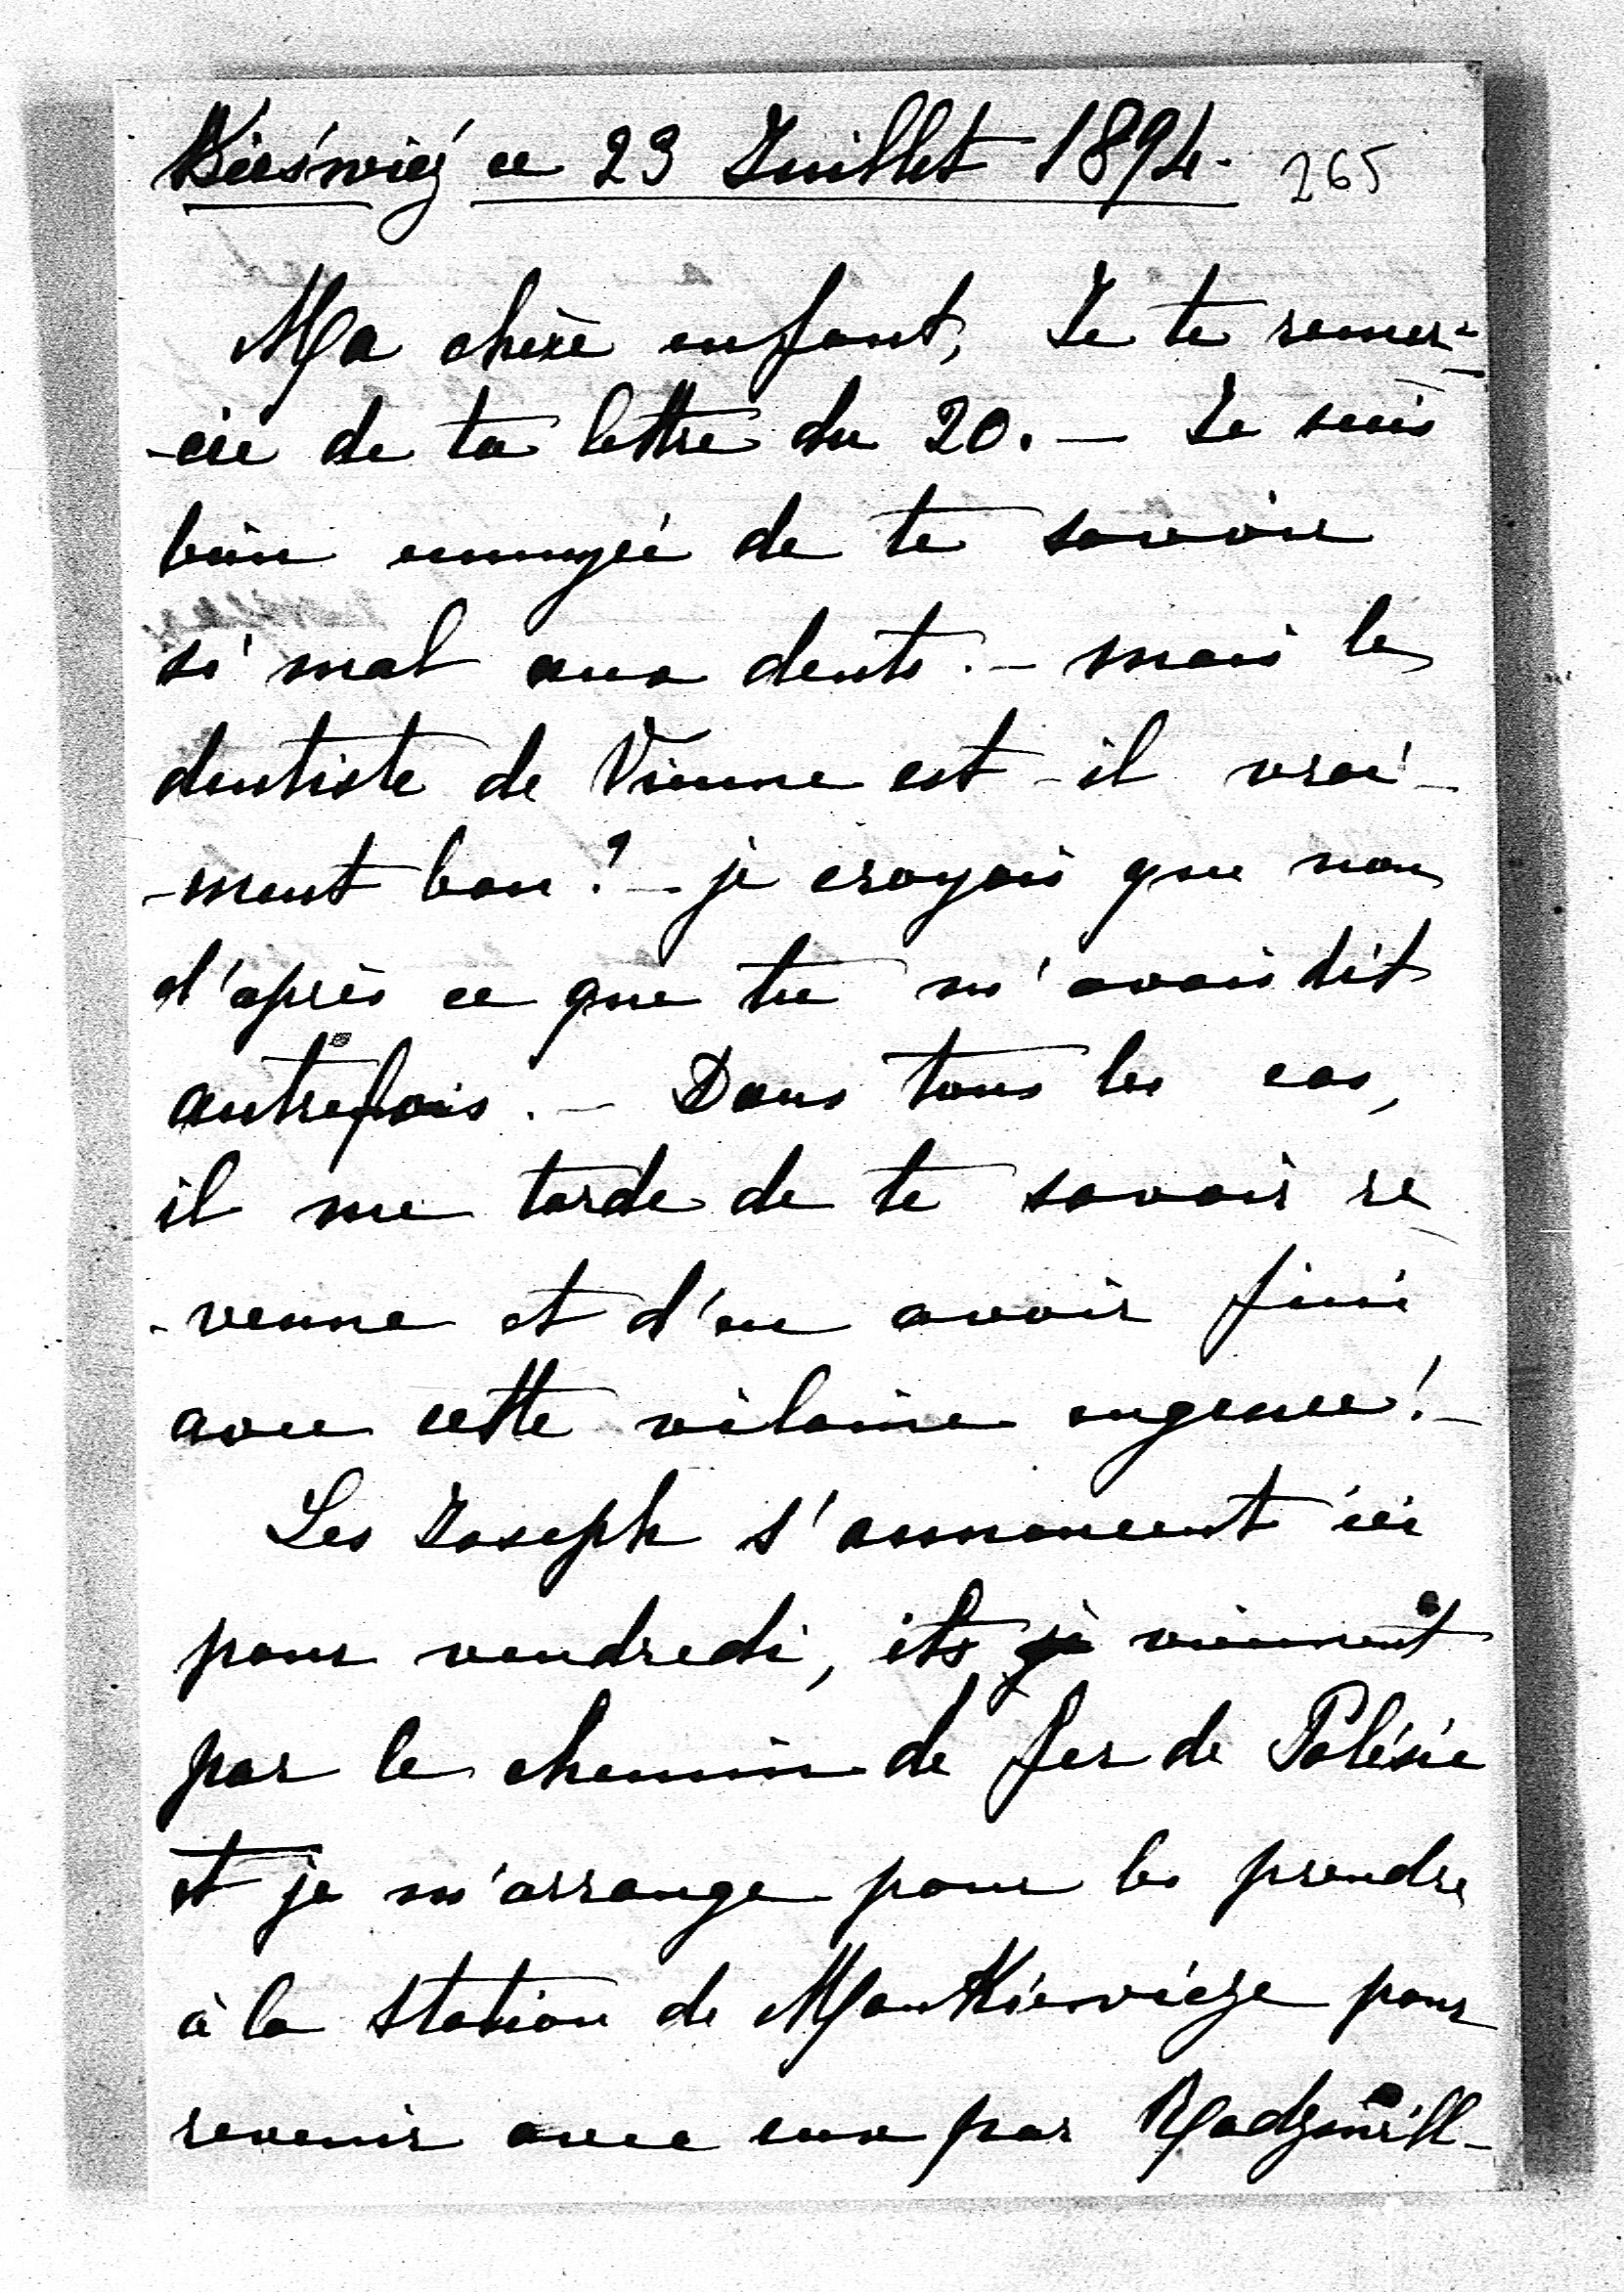 Nieśwież ce 23 Juillet 1894. 265
Ma chère enfant, Je te remer-
-cie de ta lettre du 20. — Je suis
bien ennuyée de te savoir
si mal aux dents. — mais le
dentiste de Vienne est-il vrai-
-ment bon? — je croyais que non
d'après ce que tu m'avais dit
autrefois. — Dans tous les cas,
il me tarde de te savoir re
-venue et d'en avoir fini
avec cette vilaine engeance! —
Les Joseph s'annoncent ici
pour vendredi, ils viennent
par le chemin de fer de Polésie
et je m'arrange pour les prendre
à la station de Mankiewicze pour
revenir avec eux par Radziwill-